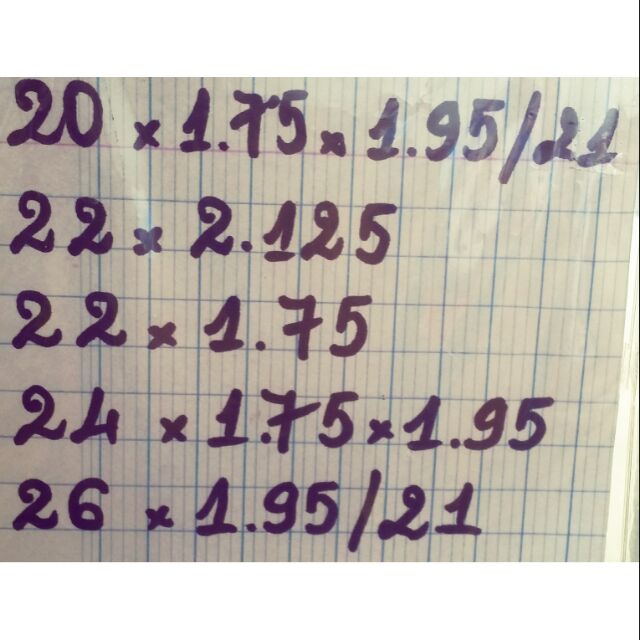 20 x 1.75 x 1.95/21
22 x 2.125
22 x 1.75
24 x 1.75 x 1.95
26 x 1.95/21